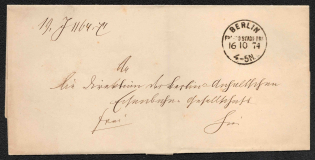 19. J 1164.77
BERLIN
16 10 74
4-5N
An
die Direktion der Berlin-Anhaltschen
Eisenbahn-Gesellschaft
frei
hier